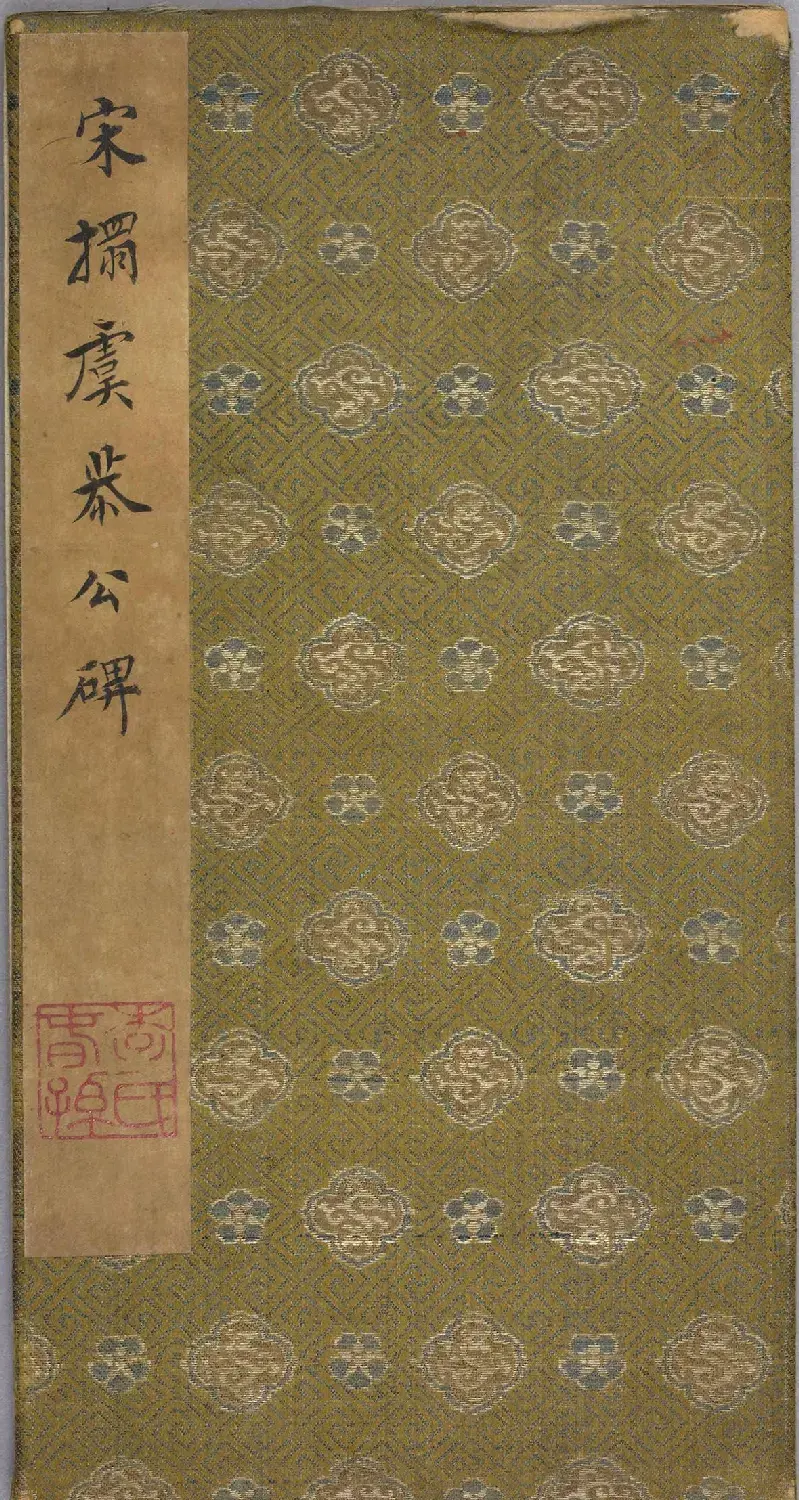 宋搨虞恭公碑